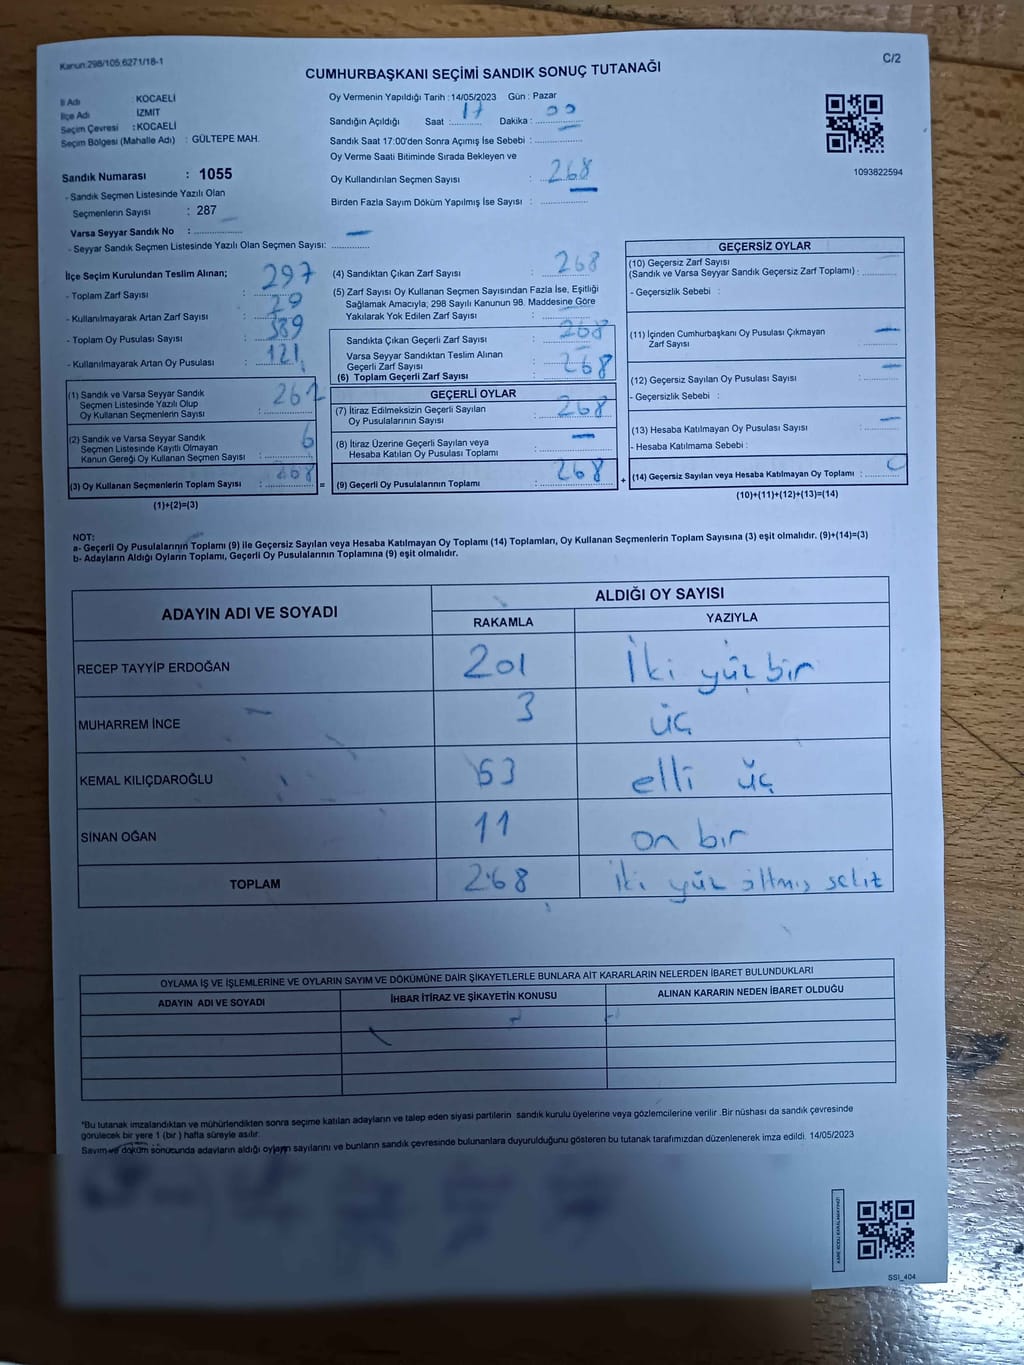 Kanun:298/105,6271/18-1
C/2
CUMHURBAŞKANI SEÇİMİ SANDIK SONUÇ TUTANAĞI
İl Adı : KOCAELİ
İlçe Adı İZMİT
Seçim Çevresi : KOCAELİ
Seçim Bölgesi (Mahalle Adı) : GÜLTEPE MAH.
Sandık Numarası : 1055
- Sandık Seçmen Listesinde Yazılı Olan
Seçmenlerin Sayısı : 287
Varsa Seyyar Sandık No :
- Seyyar Sandık Seçmen Listesinde Yazılı Olan Seçmen Sayısı:
Oy Vermenin Yapıldığı Tarih : 14/05/2023 Gün : Pazar
Sandığın Açıldığı Saat : 17 Dakika : 00
Sandık Saat 17:00'den Sonra Açımış İse Sebebi :
Oy Verme Saati Bitiminde Sırada Bekleyen ve
Oy Kullandırılan Seçmen Sayısı : 268
Birden Fazla Sayım Döküm Yapılmış İse Sayısı :
1093822594
İlçe Seçim Kurulundan Teslim Alınan;
- Toplam Zarf Sayısı : 297
- Kullanılmayarak Artan Zarf Sayısı : 29
- Toplam Oy Pusulası Sayısı : 389
- Kullanılmayarak Artan Oy Pusulası : 121
(1) Sandık ve Varsa Seyyar Sandık
Seçmen Listesinde Yazılı Olup
Oy Kullanan Seçmenlerin Sayısı : 262
(2) Sandık ve Varsa Seyyar Sandık
Seçmen Listesinde Kayıtlı Olmayan
Kanun Gereği Oy Kullanan Seçmen Sayısı : 6
(3) Oy Kullanan Seçmenlerin Toplam Sayısı : 268 =
(1)+(2)=(3)
(4) Sandıktan Çıkan Zarf Sayısı : 268
(5) Zarf Sayısı Oy Kullanan Seçmen Sayısından Fazla İse, Eşitliği
Sağlamak Amacıyla; 298 Sayılı Kanunun 98. Maddesine Göre
Yakılarak Yok Edilen Zarf Sayısı :
Sandıkta Çıkan Geçerli Zarf Sayısı : 268
Varsa Seyyar Sandıktan Teslim Alınan
Geçerli Zarf Sayısı :
(6) Toplam Geçerli Zarf Sayısı : 268
GEÇERLİ OYLAR
(7) İtiraz Edilmeksizin Geçerli Sayılan
Oy Pusulalarının Sayısı : 268
(8) İtiraz Üzerine Geçerli Sayılan veya
Hesaba Katılan Oy Pusulası Toplamı : —
(9) Geçerli Oy Pusulalarının Toplamı : 268 +
GEÇERSİZ OYLAR
(10) Geçersiz Zarf Sayısı
(Sandık ve Varsa Seyyar Sandık Geçersiz Zarf Toplamı) :
- Geçersizlik Sebebi :
(11) İçinden Cumhurbaşkanı Oy Pusulası Çıkmayan
Zarf Sayısı : —
(12) Geçersiz Sayılan Oy Pusulası Sayısı : —
- Geçersizlik Sebebi :
(13) Hesaba Katılmayan Oy Pusulası Sayısı : —
- Hesaba Katılmama Sebebi :
(14) Geçersiz Sayılan veya Hesaba Katılmayan Oy Toplamı :
(10)+(11)+(12)+(13)=(14)
NOT:
a- Geçerli Oy Pusulalarının Toplamı (9) ile Geçersiz Sayılan veya Hesaba Katılmayan Oy Toplamı (14) Toplamları, Oy Kullanan Seçmenlerin Toplam Sayısına (3) eşit olmalıdır. (9)+(14)=(3)
b- Adayların Aldığı Oyların Toplamı, Geçerli Oy Pusulalarının Toplamına (9) eşit olmalıdır.
ADAYIN ADI VE SOYADI ALDIĞI OY SAYISI
RAKAMLA YAZIYLA
RECEP TAYYİP ERDOĞAN 201 İki yüz bir
MUHARREM İNCE 3 üç
KEMAL KILIÇDAROĞLU 53 elli üç
SİNAN OĞAN 11 on bir
TOPLAM 268 iki yüz altmış sekiz
OYLAMA İŞ VE İŞLEMLERİNE VE OYLARIN SAYIM VE DÖKÜMÜNE DAİR ŞİKAYETLERLE BUNLARA AİT KARARLARIN NELERDEN İBARET BULUNDUKLARI
ADAYIN ADI VE SOYADI İHBAR İTİRAZ VE ŞİKAYETİN KONUSU ALINAN KARARIN NEDEN İBARET OLDUĞU
*Bu tutanak imzalandıktan ve mühürlendikten sonra seçime katılan adayların ve talep eden siyasi partilerin sandık kurulu üyelerine veya gözlemcilerine verilir .Bir nüshası da sandık çevresinde
görülecek bir yere 1 (bir ) hafta süreyle asılır.
Sayım ve döküm sonucunda adayların aldığı oyların sayılarını ve bunların sandık çevresinde bulunanlara duyurulduğunu gösteren bu tutanak tarafımızdan düzenlenerek imza edildi. 14/05/2023
SSI_404